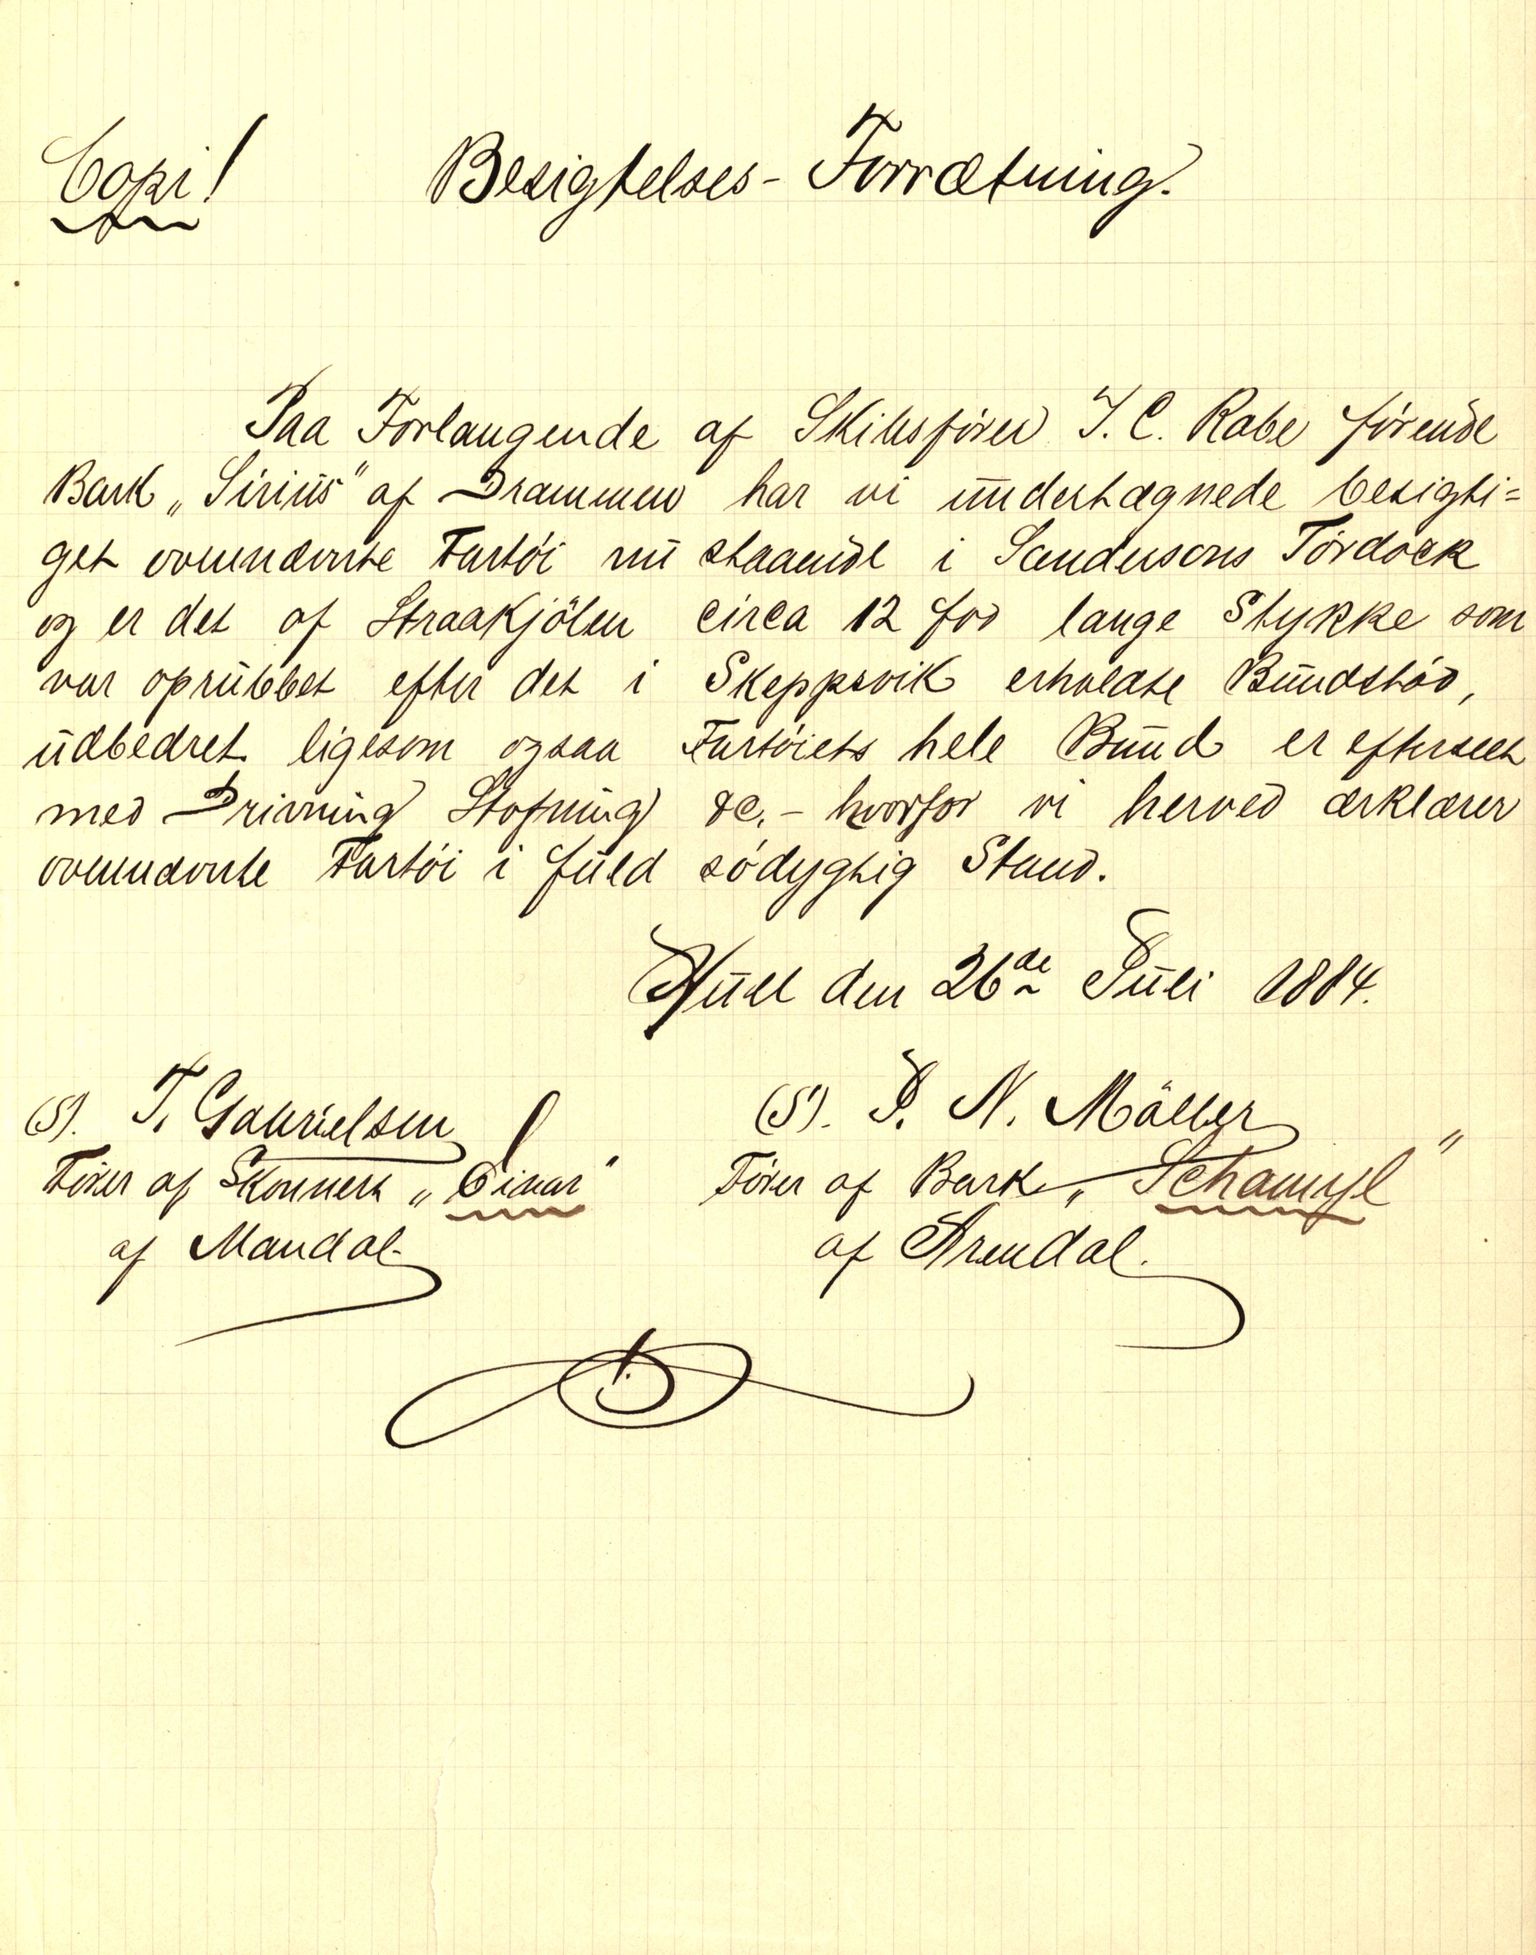 Copi!
Besigtelses-Forrætning.
Paa Forlangende af Skibsfører J. C. Rabe førende
Bark „Sirius" af Drammen har vi undertægnede besigti=
get ovennævnte Fartöi nu staaende i Sandersons Tördock
og er det af Straakjölen circa 12 fod lange Stykke som
var oprubbet efter det i Skeppsvik erholdte Bundstöd,
udbedret ligesom ogsaa Fartöiets hele Bund er efterseet
med Drivning Stopning &c. - hvorfor vi herved ærklærer
ovennævnte Fartöi i fuld södygtig Stand.
Hull den 26de Juli 1884.
(S). T. Gabrielsen
Förer af Skonnert „Einar"
af Mandal
(S). J. N. Möller
Förer af Bark „Schamyl"
af Arendal.